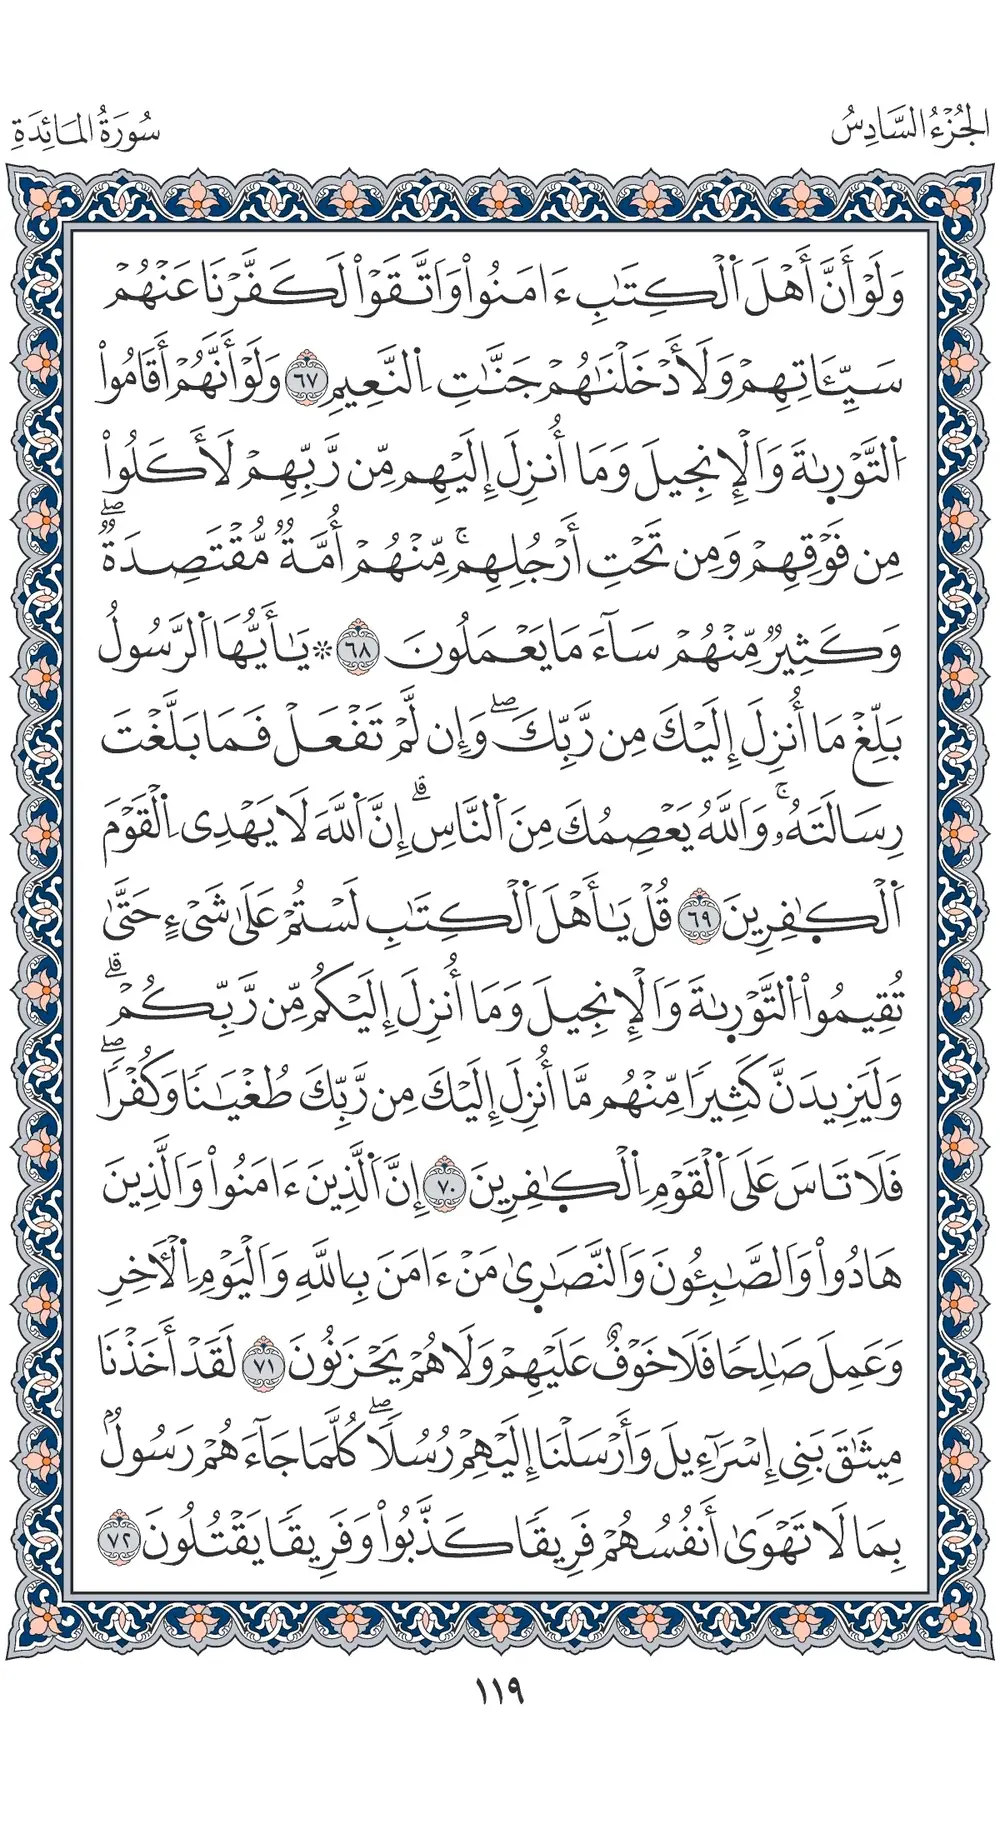 الجُزْءُ السَّادِسُ
سُورَةُ المَائِدَةِ
وَلَوْ أَنَّ أَهْلَ اَ۬لْكِتَٰبِ ءَامَنُواْ وَاَتَّقَوْاْ لَكَفَّرْنَا عَنْهُمْ
سَيِّـَٔاتِهِمْ وَلَأَدْخَلْنَٰهُمْ جَنَّٰتِ اِ۬لنَّعِيمِ ٦٧ وَلَوْ أَنَّهُمْ أَقَامُواْ
اُ۬لتَّوْر۪ىٰةَ وَالْإِنجِيلَ وَمَا أُنزِلَ إِلَيْهِم مِّن رَّبِّهِمْ لَأَكَلُواْ
مِن فَوْقِهِمْ وَمِن تَحْتِ أَرْجُلِهِمۚ مِّنْهُمْ أُمَّةٞ مُّقْتَصِدَةٞۖ
وَكَثِيرٞ مِّنْهُمْ سَآءَ مَا يَعْمَلُونَ ٦٨ ۞ يَٰأَيُّهَا اَ۬لرَّسُولُ
بَلِّغْ مَا أُنزِلَ إِلَيْكَ مِن رَّبِّكَۖ وَإِن لَّمْ تَفْعَلْ فَمَا بَلَّغْتَ
رِسَالَتَهُۥۚ وَاَللَّهُ يَعْصِمُكَ مِنَ اَ۬لنَّاسِۗ إِنَّ اَ۬للَّهَ لَا يَهْدِى اِ۬لْقَوْمَ
اَ۬لْكٰ۪فِرِينَ ٦٩ قُلْ يَٰأَهْلَ اَ۬لْكِتَٰبِ لَسْتُمْ عَلَىٰ شَىْءٍ حَتَّىٰ
تُقِيمُواْ اُ۬لتَّوْر۪ىٰةَ وَالْإِنجِيلَ وَمَا أُنزِلَ إِلَيْكُم مِّن رَّبِّكُمْۗ
وَلَيَزِيدَنَّ كَثِيرٗا مِّنْهُم مَّا أُنزِلَ إِلَيْكَ مِن رَّبِّكَ طُغْيَٰنٗا وَكُفْرٗاۖ
فَلَا تَاسَ عَلَى اَ۬لْقَوْمِ اِ۬لْكٰ۪فِرِينَ ٧٠ إِنَّ اَ۬لَّذِينَ ءَامَنُواْ وَاَلَّذِينَ
هَادُواْ وَالصَّٰبِـُٔونَ وَالنَّصَٰر۪ىٰ مَنْ ءَامَنَ بِاللَّهِ وَالْيَوْمِ اِ۬لْأٓخِرِ
وَعَمِلَ صَٰلِحٗا فَلَا خَوْفٌ عَلَيْهِمْ وَلَا هُمْ يَحْزَنُونَ ٧١ لَقَدْ أَخَذْنَا
مِيثَٰقَ بَنِى إِسْرَآءِيلَ وَأَرْسَلْنَا إِلَيْهِمْ رُسُلٗاۖ كُلَّمَا جَآءَهُمْ رَسُولُۢ
بِمَا لَا تَهْوَىٰ أَنفُسُهُمْ فَرِيقٗا كَذَّبُواْ وَفَرِيقٗا يَقْتُلُونَ ٧٢
١١٩